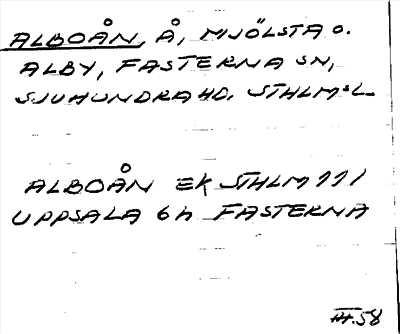 ALBOÅN, Å, MJÖLSTA O.
ALBY, FASTERNA SN,
SJUHUNDRA HD. STHLMSL
ALBOÅN EK STHLM 111
UPPSALA 6h FASTERNA
III.58